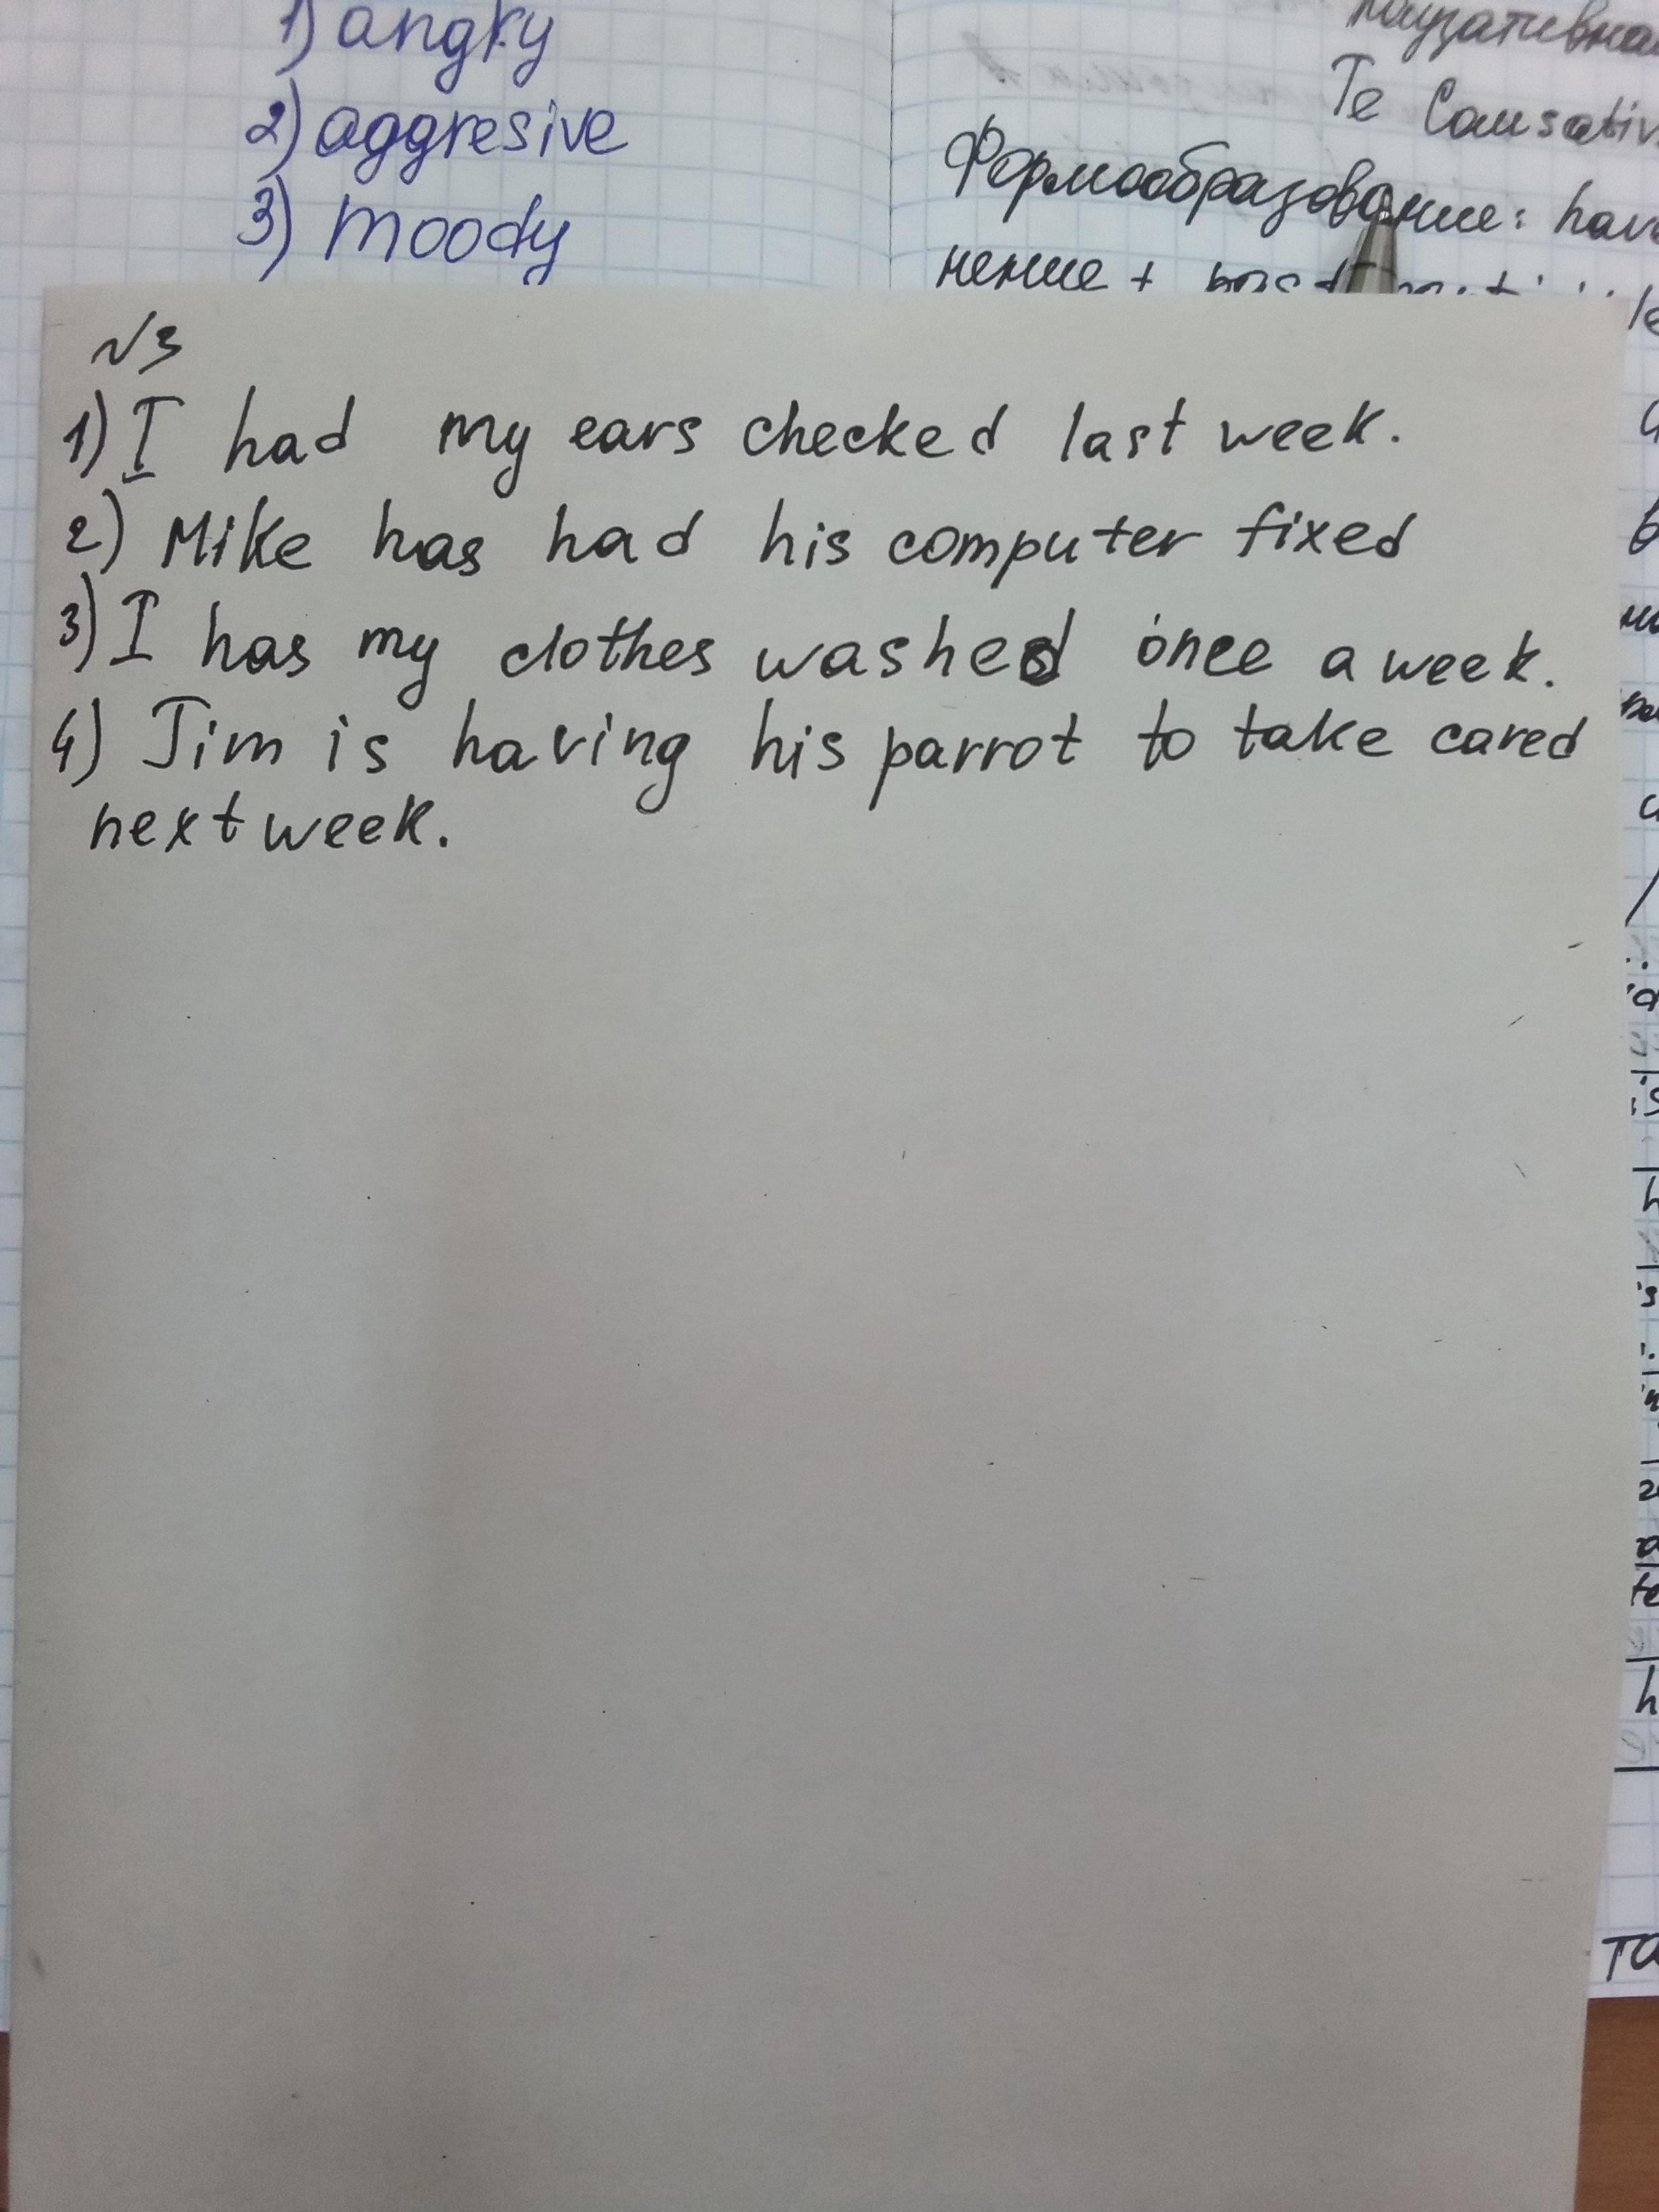 1) angry
2) aggresive
3) moody
Te
Формообразование: have
нение + past
№3
1) I had my ears checked last week.
2) Mike has had his computer fixed
3) I has my clothes washed once a week.
4) Jim is having his parrot to take cared
next week.